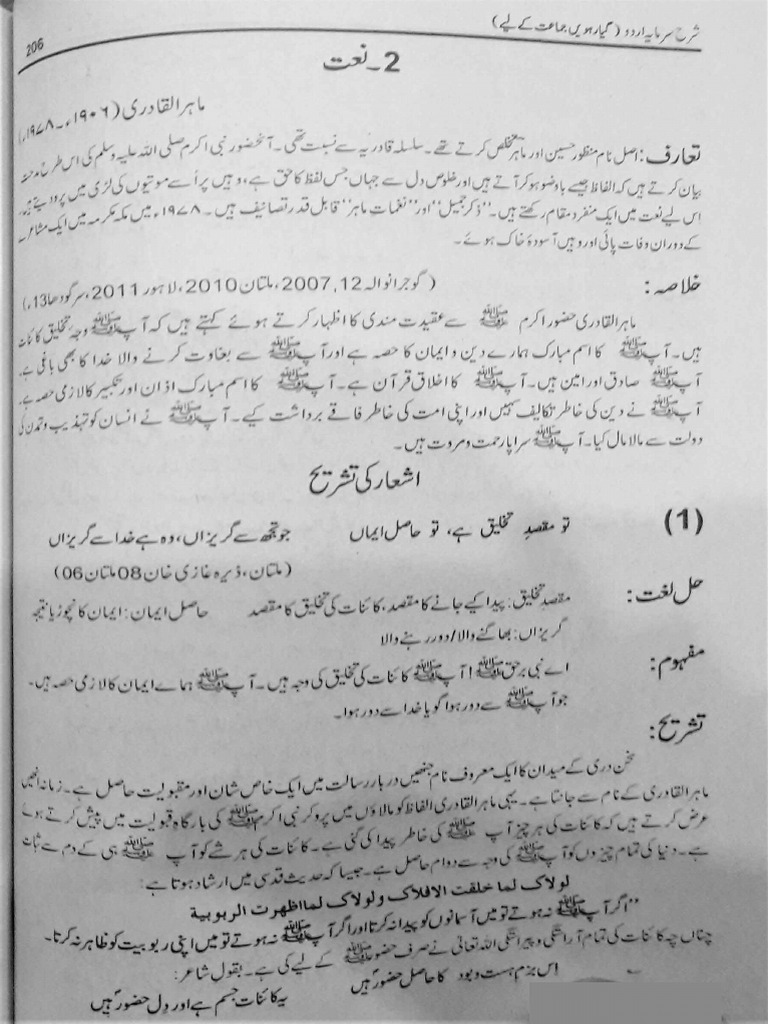 شرح سرمایہ اردو (گیارھویں جماعت کے لیے)
206
2۔ نعت
ماہر القادری (۱۹۰۶ء۔۱۹۷۸ء)
تعارف: اصل نام منظور حسین اور ماہر تخلص کرتے تھے۔ سلسلہ قادریہ سے نسبت تھی۔ آنحضور نبی اکرم صلی اللہ علیہ وسلم کی اس طرح مدحت
بیان کرتے ہیں کہ الفاظ جیسے باوضو ہو کر آتے ہیں اور خلوص دل سے جہاں جس لفظ کا حق ہے، وہیں پر اُسے موتیوں کی لڑی میں پرو دیتے ہیں۔
اس لیے نعت میں ایک منفرد مقام رکھتے ہیں۔ ”ذکر جمیل“ اور ”نغمات ماہر“ قابل قدر تصانیف ہیں۔ ۱۹۷۸ء میں مکہ مکرمہ میں ایک مشاعرے
کے دوران وفات پائی اور وہیں آسودۂ خاک ہوئے۔
خلاصہ: (گوجرانوالہ 12,2007، ملتان 2010، لاہور 2011، سرگودھا 13ء)
ماہر القادری حضور اکرم ﷺ سے عقیدت مندی کا اظہار کرتے ہوئے کہتے ہیں کہ آپ ﷺ وجہ تخلیق کائنات
ہیں۔ آپ ﷺ کا اسم مبارک ہمارے دین و ایمان کا حصہ ہے اور آپ ﷺ سے بغاوت کرنے والا خدا کا بھی باغی ہے۔
آپ ﷺ صادق اور امین ہیں۔ آپ ﷺ کا اخلاق قرآن ہے۔ آپ ﷺ کا اسم مبارک اذان اور تکبیر کا لازمی حصہ ہے۔
آپ ﷺ نے دین کی خاطر تکالیف سہیں اور اپنی امت کی خاطر فاقے برداشت کیے۔ آپ ﷺ نے انسان کو تہذیب و تمدن کی
دولت سے مالا مال کیا۔ آپ ﷺ سراپا رحمت و مروت ہیں۔
اشعار کی تشریح
(1) تو مقصدِ تخلیق ہے، تو حاصل ایماں جو تجھ سے گریزاں، وہ ہے خدا سے گریزاں
(ملتان، ڈیرہ غازی خان 08 ملتان 06)
حل لغت: مقصدِ تخلیق: پیدا کیے جانے کا مقصد، کائنات کی تخلیق کا مقصد حاصل ایمان: ایمان کا نچوڑ یا نتیجہ
گریزاں: بھاگنے والا/دور رہنے والا
مفہوم: اے نبی برحق ﷺ! آپ ﷺ کائنات کی تخلیق کی وجہ ہیں۔ آپ ﷺ ہمارے ایمان کا لازمی حصہ ہیں۔
جو آپ ﷺ سے دور ہوا گویا خدا سے دور ہوا۔
تشریح:
سخن وری کے میدان کا ایک معروف نام جنھیں دربار رسالت میں ایک خاص شان اور مقبولیت حاصل ہے۔ زمانہ انھیں
ماہر القادری کے نام سے جانتا ہے۔ یہی ماہر القادری الفاظ کو مالاؤں میں پرو کر نبی اکرم ﷺ کی بارگاہ قبولیت میں پیش کرتے ہوئے
عرض کرتے ہیں کہ کائنات کی ہر چیز آپ ﷺ کی خاطر پیدا کی گئی ہے۔ کائنات کی ہر شے کو آپ ﷺ ہی کے دم سے ثبات
ہے۔ دنیا کی تمام چیزوں کو آپ ﷺ کی وجہ سے دوام حاصل ہے۔ جیسا کہ حدیث قدسی میں ارشاد ہوتا ہے:
لولاک لما خلقت الافلاک ولولاک لما اظھرت الربوبیة
”اگر آپ ﷺ نہ ہوتے تو میں آسمانوں کو پیدا نہ کرتا اور اگر آپ ﷺ نہ ہوتے تو میں اپنی ربوبیت کو ظاہر نہ کرتا۔
چناں چہ کائنات کی تمام آراستگی و پیراستگی اللہ تعالیٰ نے صرف حضور ﷺ کے لیے کی ہے۔ بقول شاعر:
اس بزم ہست و بود کا حاصل حضورؐ ہیں
یہ کائنات جسم ہے اور دل حضورؐ ہیں